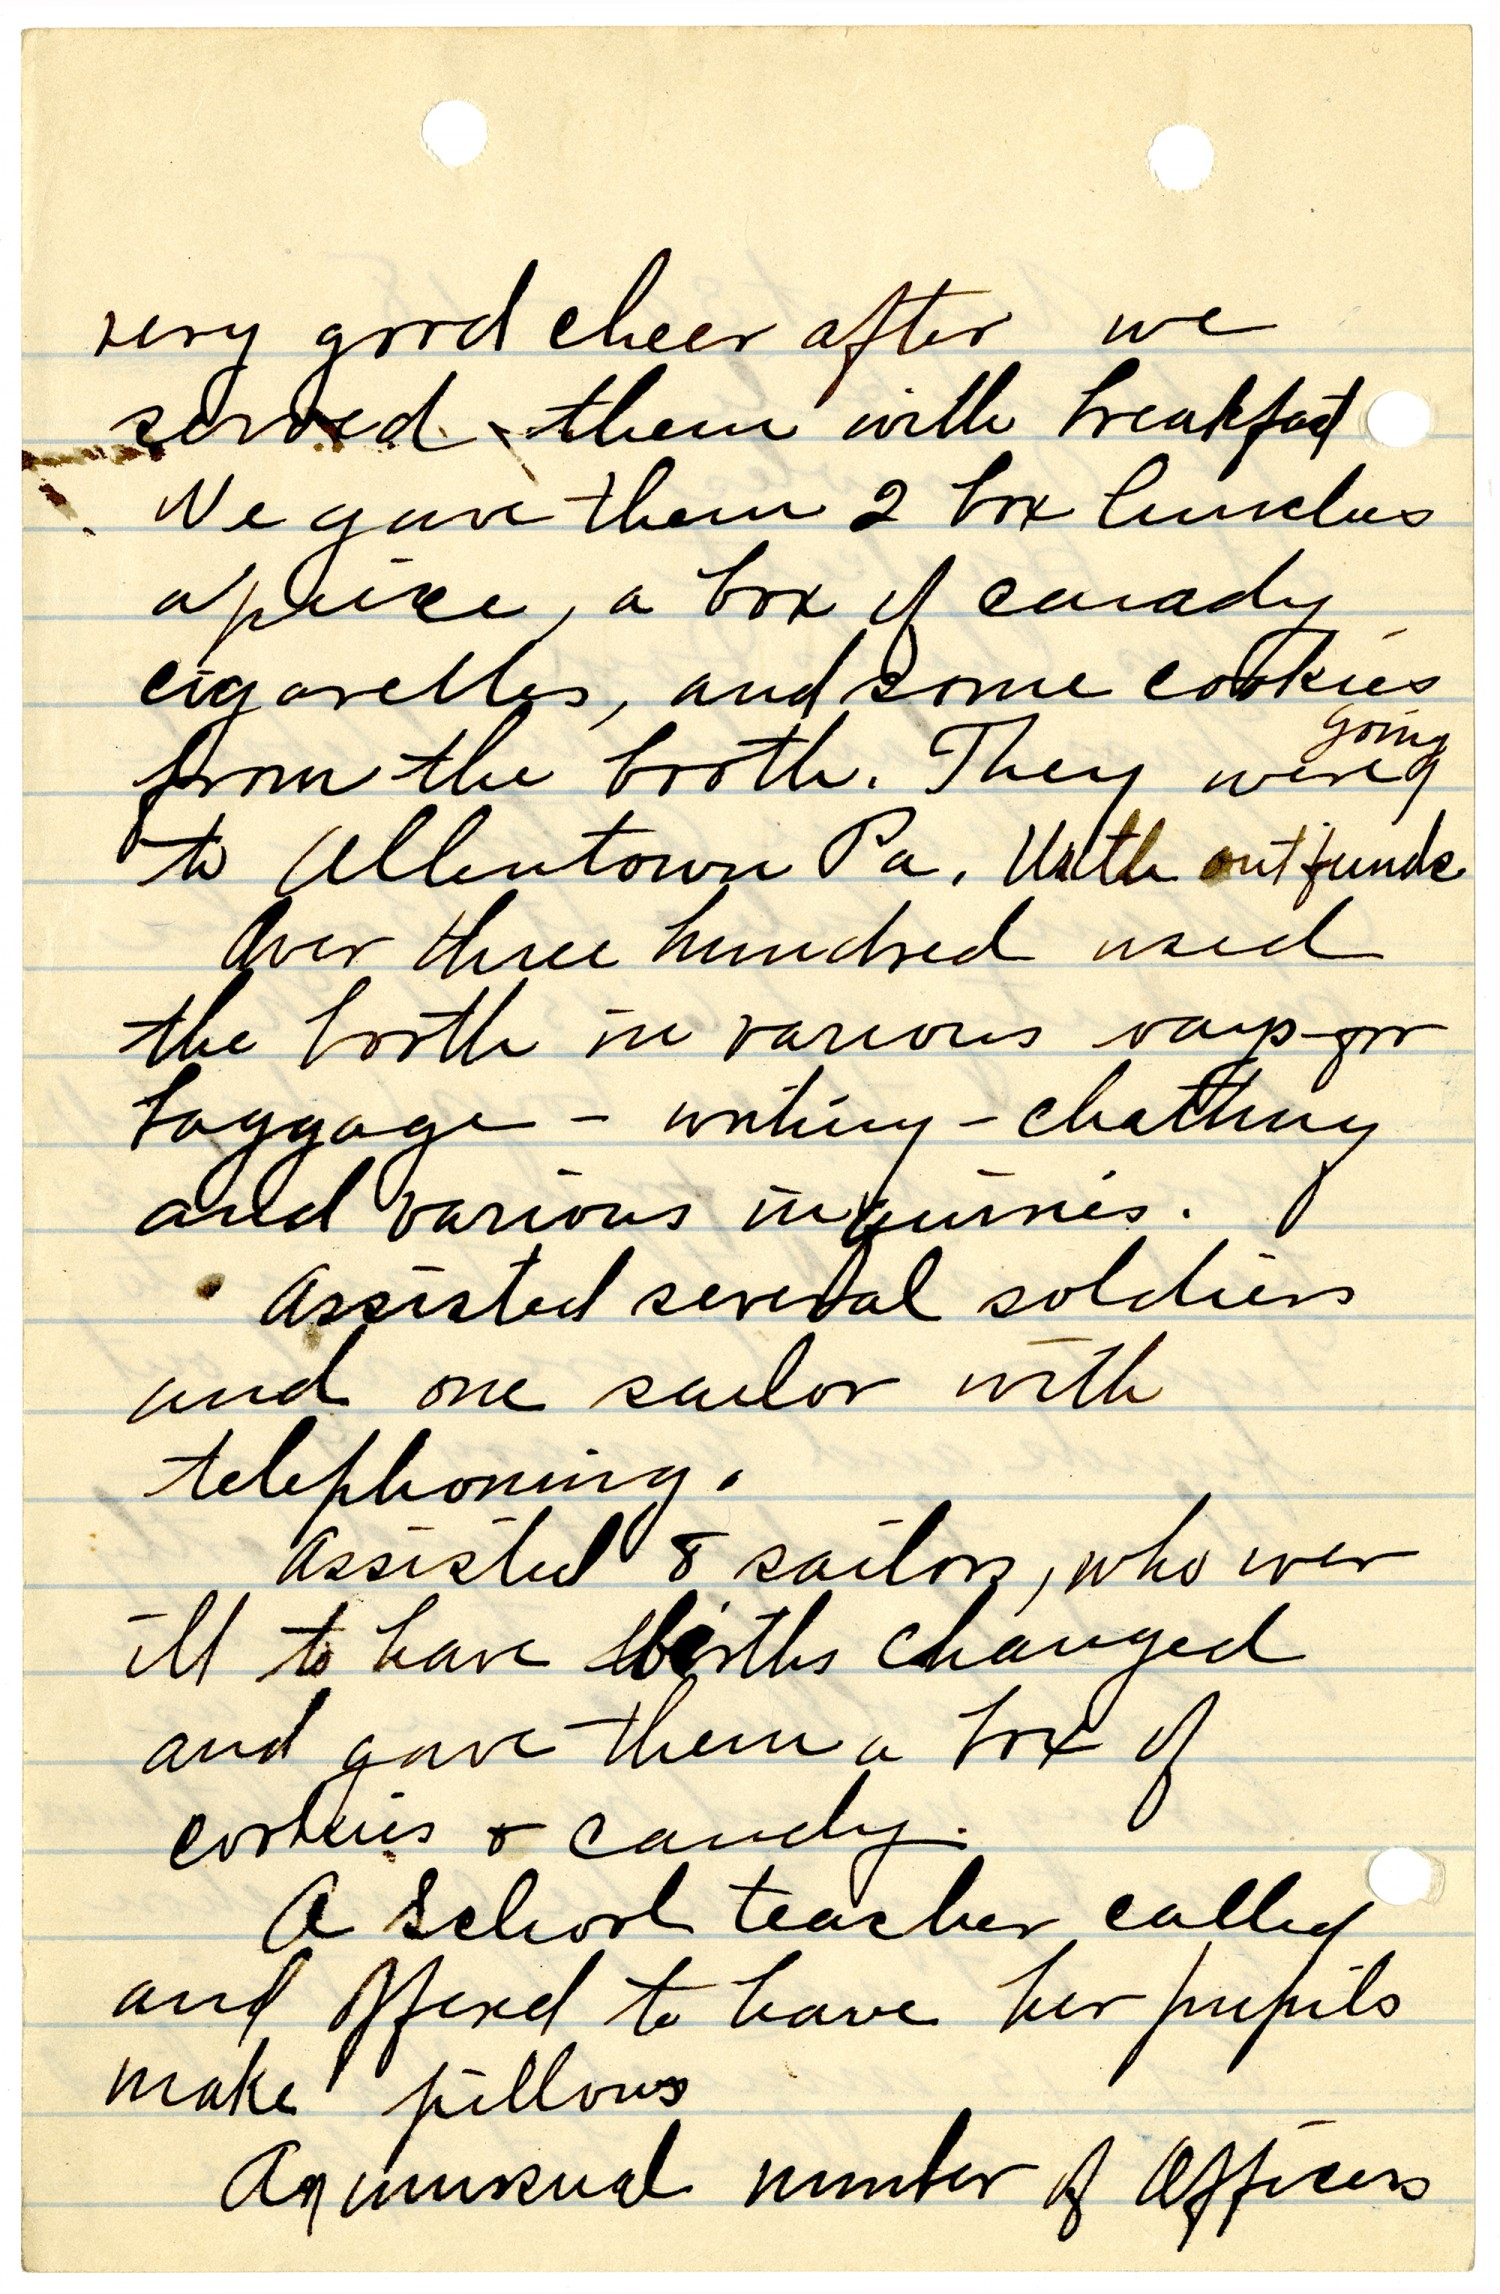 very good cheer after we
served them with breakfast
We gave them 2 box lunches
apeice, a box of canady
cigarettes, and some cookies
from the booth. They were going
to Allentown Pa. With out funds
Over three hundred used
the booth in various ways-
baggage - writing - chatting
and various inquiries.
Assisted several soldiers
and one sailor with
telephoning.
Assisted 8 sailors, who wer
ill to have births changed
and gave them a box of
cookies & candy.
A School teacher called
and offered to have her pupils
make pillows
An unusual number of Officers